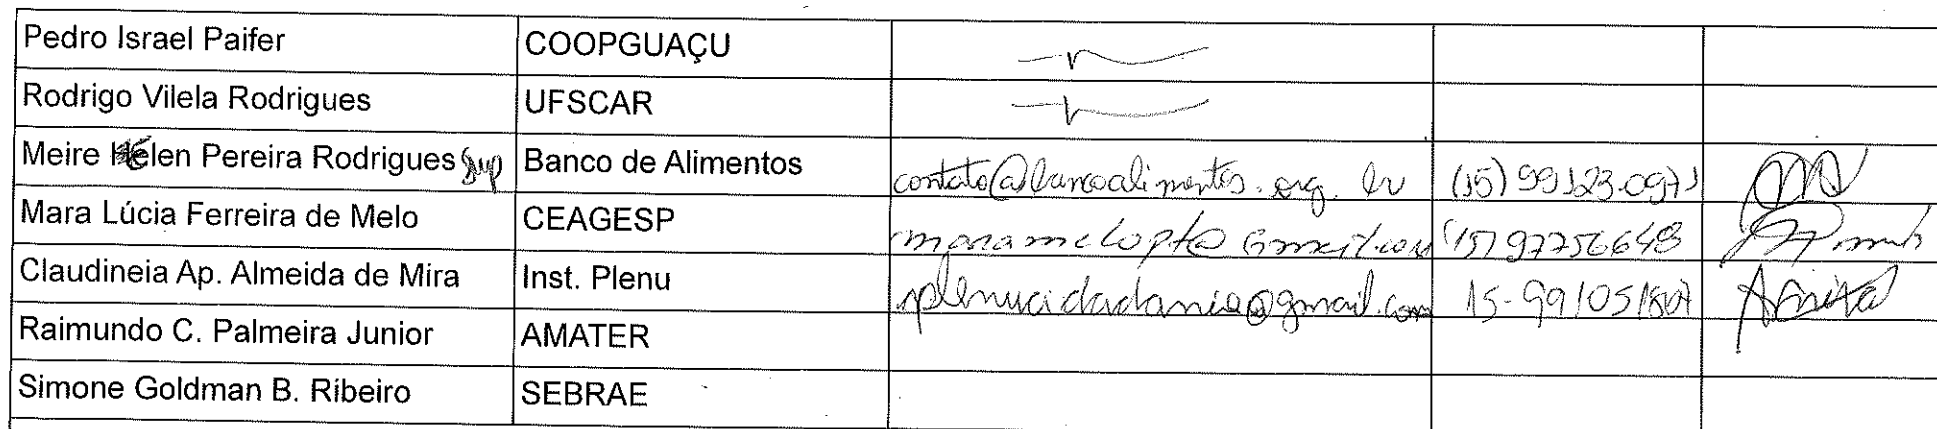 Pedro Israel Paifer COOPGUAÇU
Rodrigo Vilela Rodrigues UFSCAR
Meire Hélen Pereira Rodrigues Sup Banco de Alimentos contato@bancoalimentos.org.br (15)99123.0971
Mara Lúcia Ferreira de Melo CEAGESP maramelopt@gmail.com (15)97756648
Claudineia Ap. Almeida de Mira Inst. Plenu plenucidadania@gmail.com
Raimundo C. Palmeira Junior AMATER
Simone Goldman B. Ribeiro SEBRAE